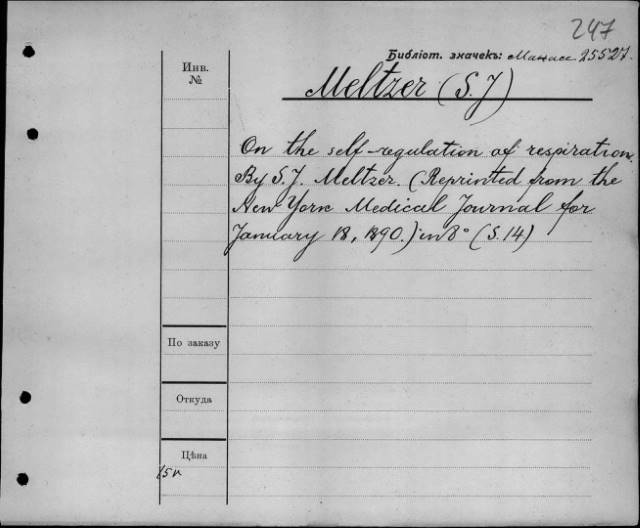 247
Библіот. значекъ: Манассе 25527.
Инв.
№
Meltzer (S. J)
On the self-regulation of respiration.
By S. J. Meltzer. (Reprinted from the
New York Medical Journal for
January 18, 1890.) in 8° (S. 14)
По заказу
Откуда
Цѣна
15к